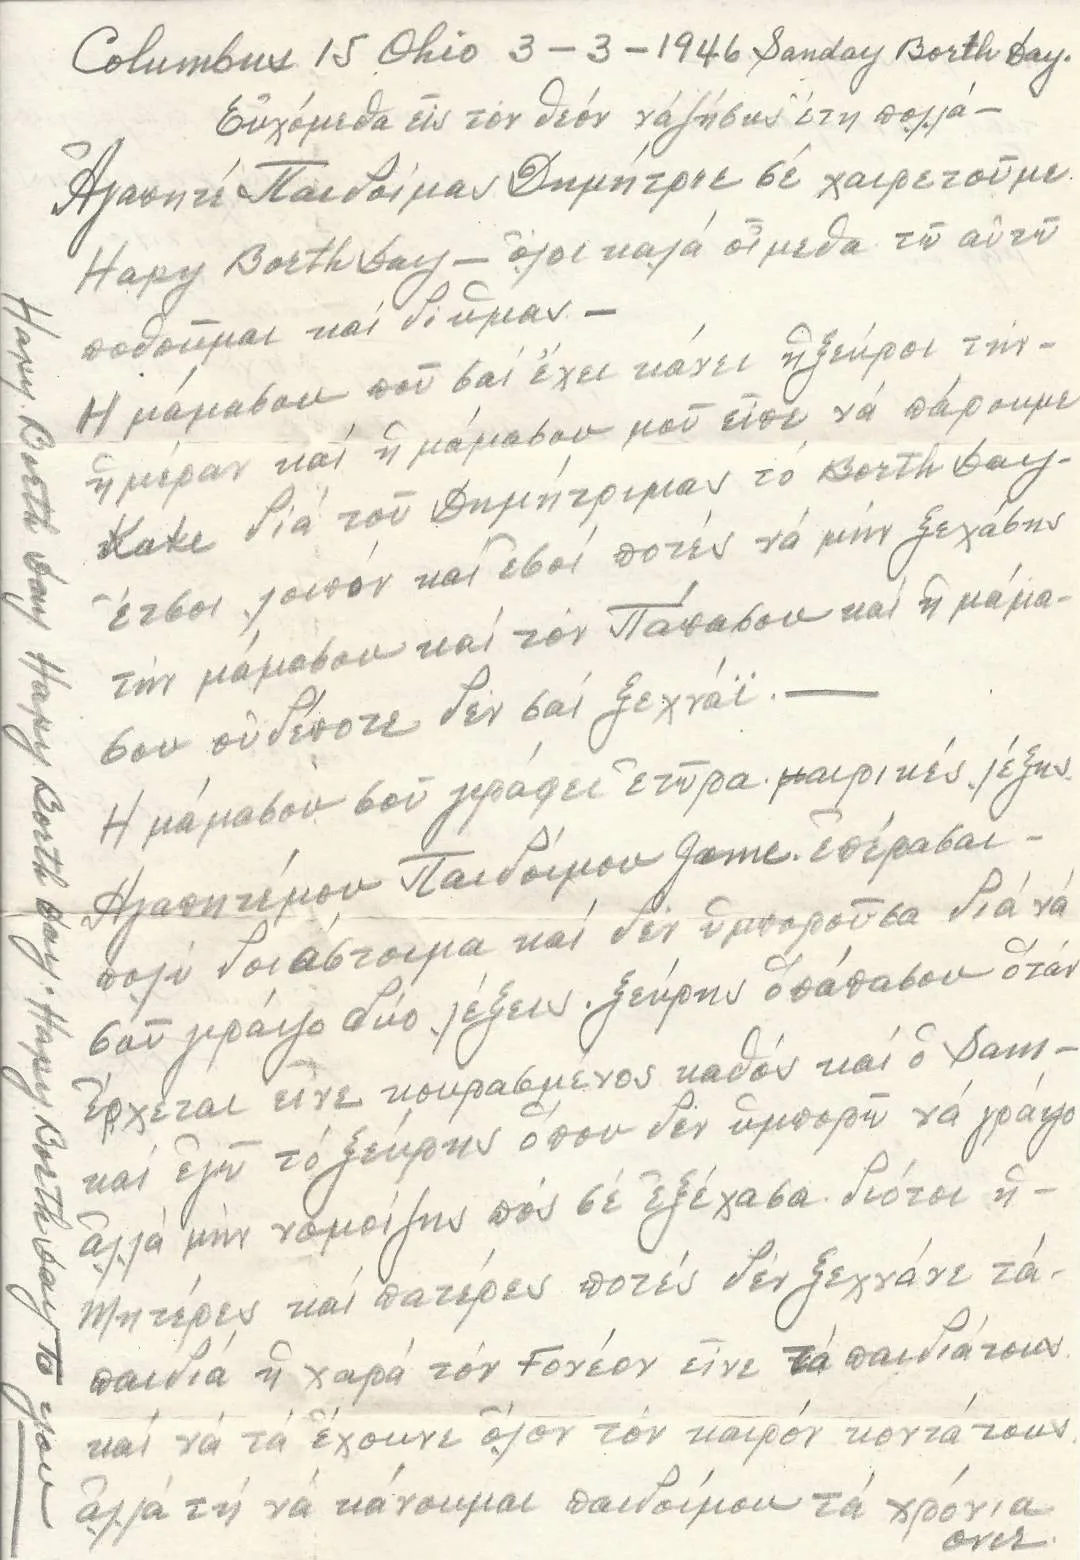 Columbus 15 Ohio 3-3-1946 Sanday Borth Day.
Εὐχόμεθα εἰς τὸν θεόν νά ζήσης ἔτη πολλά-
Ἀγαπητέ Παιδοίμας Δημήτριε σέ χαιρετοῦμε
Hapy Borth Day - ὅλοι καλά οἴμεθα τῶ αὐτῶ
ποθοῦμαι καί δι ὑμας. -
Η μάμασου ποῦ σαί ἔχει κάνει ἡξεύροι τήν-
ἡμέραν καί ἡ μάμασου μοῦ εἶπε νά πάρουμε
Kake διά τοῦ Δημήτριμας τό Borth Day-
ἔτσοι λοιπόν καί ἐσοί ποτές νά μήν ξεχάσης
τήν μάμασου καί τόν Πάπασου καί ἡ μάμα-
σου οὐδέποτε δέν σαί ξεχνάϊ. —
Η μάμασου σοῦ γράφει ἐτῶρα μαιρικές λέξης.
Αγαπητέμου Παιδοίμου Jame. ἐπέρασαι -
πολύ δοιάστοιμα καί δέν ὑμποροῦσα διά νά
σοῦ γράψο δύο λέξεις. ξεύρης ὁπάπασου ὅταν
ἔρχεται εἶνε κουρασμένος καθός καί ὁ Sam-
καί ἐγῶ τό ξεύρης ὅπου δέν ὑμπορῶ νά γράψο
ἀλλά μήν νομοίζης πός σέ ἐξέχασα διότοι ἡ-
Μητέρες καί πατέρες ποτές δέν ξεχνάνε τά-
παιδιά ἡ χαρά τόν Γονέον εἶνε τά παιδιάτους
καί νά τά ἔχουνε ὅλον τόν καιρόν κοντάτους.
ἀλλά τή νά κάνουμαι παιδοίμου τά χρόνια
over.
Hapy Borth Day Hapy Borth Day. Hapy Borth Day To you